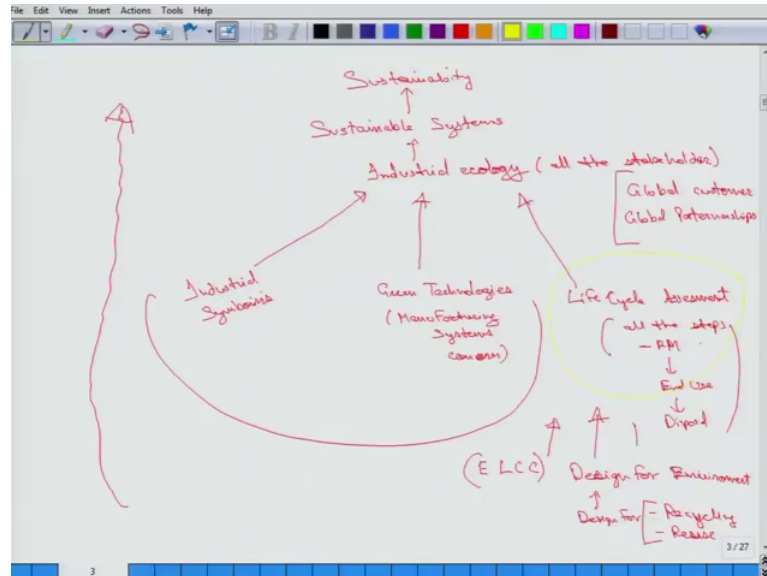 File Edit View Insert Actions Tools Help
Sustainability
Sustainable Systems
Industrial ecology (all the stakeholder)
Global customer
Global Parternerships
Industrial
Symbiosis
Green Technologies
(Manufacturing
Systems
concern)
Life Cycle Assesment
(all the steps
- RM
End Use
Disposal
(E LCC)
Design for Environment
Design for - Recycling
- Reuse
3/27
3